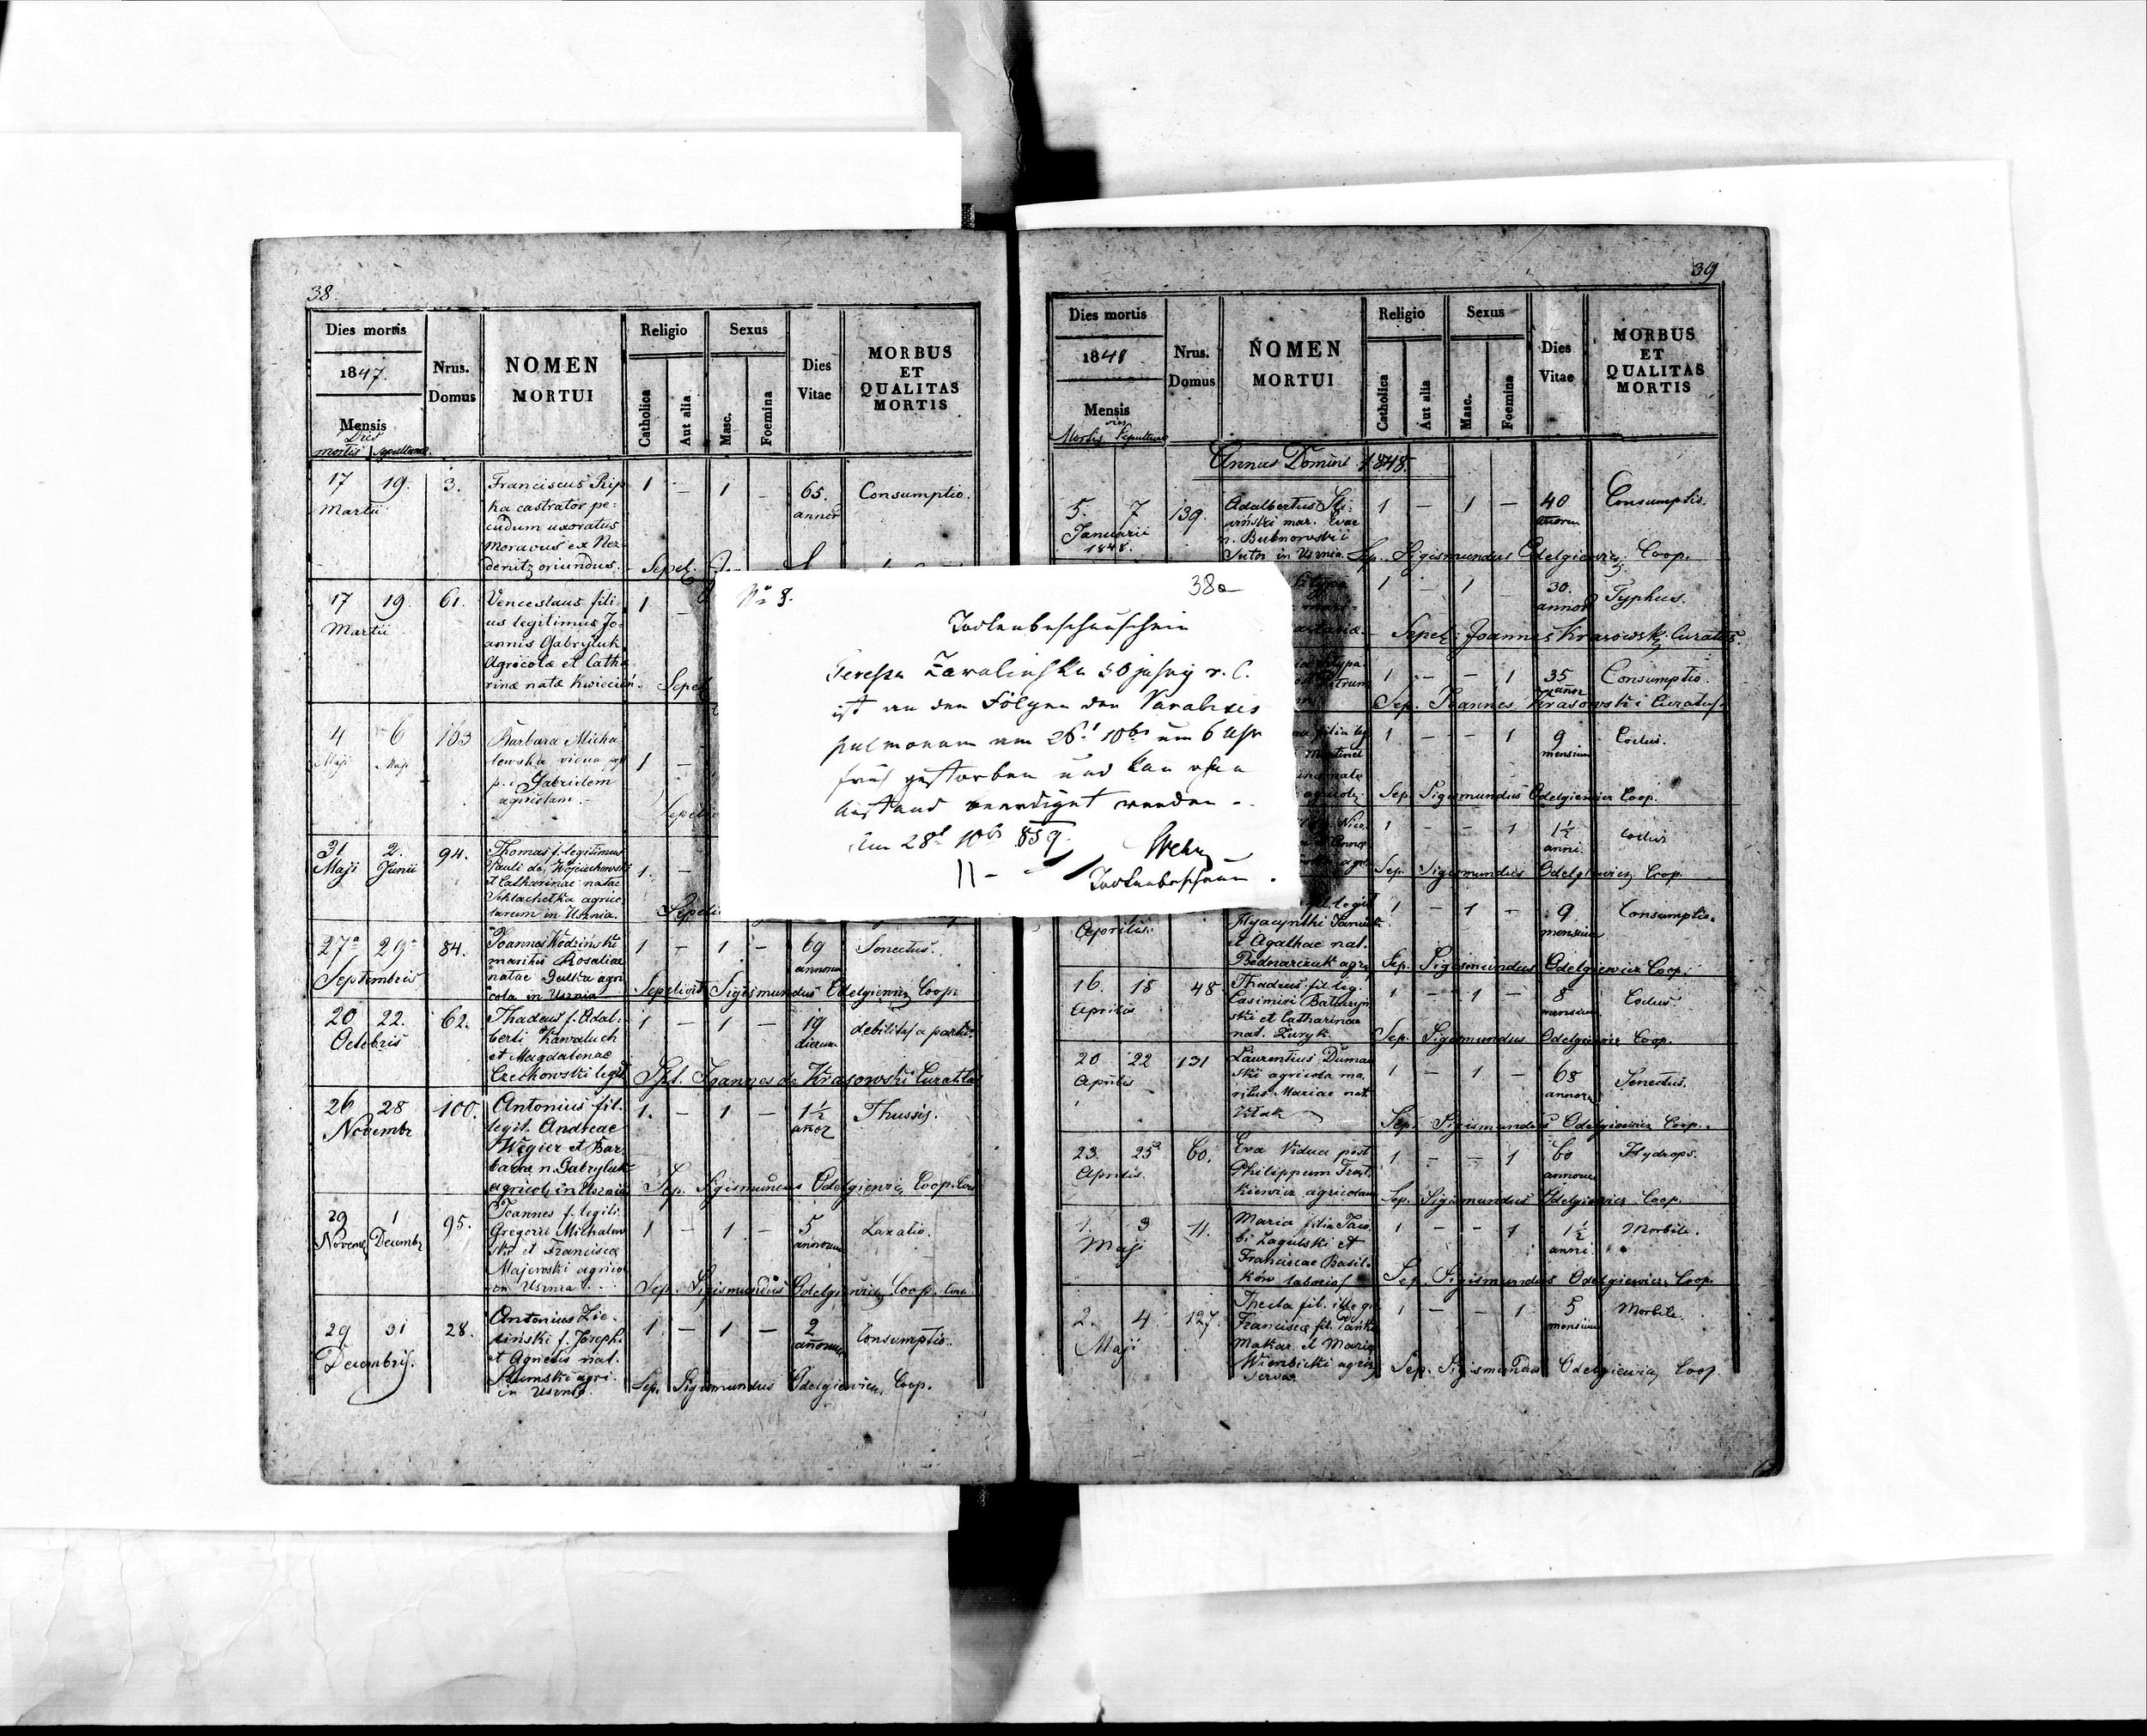 38.
Dies mortis
1847.
Mensis
Dies
mortis sepulturae
Nrus.
Domus
NOMEN
MORTUI
Religio
Catholica
Aut alia
Sexus
Masc.
Foemina
Dies
Vitae
MORBUS
ET
QUALITAS
MORTIS
17 19. 3. Franciscus Rip 1 – 1 – 65. Consumptio.
Martii ka castrator pe: annor
cudum uxoratus
Moravus ex Nez
denitz oriundus. Sepel.
17 19. 61. Venceslaus fili 1 –
Martii us legitimus Jo
annis Gabryluk
Agricolæ et Catha
rinæ natæ Kwiecień. Sepel
4 6 103 Barbara Micha
Maji Maji lewska vidua 1 –
p. Gabrielem
agricolam.
31 2. 94. Thomas f. legitimus
Maji Junii Pauli de Wojciechowski 1. –
et Catharinae natae
Schlachetka agrico
larum in Usznia. Sepeli
27ª 29ª 84. Joannes Wodziński 1 – 1 – 69 Senectus.
Septembris maritus Rosaliae annorum
natae Dutka agri
cola in Usznia Sepelivit Sigismundus Odelgiewicz Coop.
20 22. 62. Thadeus f. Adal: 1 – 1 – 19 debilitas a partu.
Octobris berti Kowaluch dierum
et Magdalenae
Czechowski legit Spl. Joannes de Krasowski Curatus
26 28 100. Antonius fil. 1. – 1 – 1½ Thussis.
Novembr legit. Andreae añor
Węgier et Bar
barae n. Gabryluk
agricol. in Usznia Sep. Sigismundus Odelgiewicz Coop.
29 1 95. Joannes f. legit. 1 – 1 – 5 Laxatio.
Novemb Decembr Gregorii Michalew annorum
ski et Franciscæ
Majewski agrico
in Usznia Sep. Sigismundus Odelgiewicz Coop.
29 31 28. Antonius Zie 1. – 1 – 2 Consumptio.
Decembris. liński f. Josephi añorum
et Agnetis nat.
agri.
in Usznia. Sep. Sigismundus Odelgiewicz Coop.
No 8. 38a
Todtenbeschauschein
Teressa Zawalinska 50 jährig r. C.
ist an den Folgen der Paralisis
pulmonum am 26t 10br um 6 Uhr
früh gestorben und kan ohne
Anstand beerdiget werden
Am 28t 10br 859.
Todtenbeschauer
39
Dies mortis
1848
Mensis
dies
Mortis Sepulturae
Nrus.
Domus
NOMEN
MORTUI
Religio
Catholica
Aut alia
Sexus
Masc.
Foemina
Dies
Vitae
MORBUS
ET
QUALITAS
MORTIS
Annus Domini 1848.
5. 7 139. Adalbertus 1 – 1 – 40 Consumptio.
Januarii mar. Evae annorum
1848. n. Bubnowski
Sutor in Usznia. Sep. Sigismundus Odelgiewicz Coop.
1 – 1 30. Typhus.
annor
Sepel: Joannes Krasowski Curatus.
1 – – 1 35 Consumptio
Petrum añor
Sep. Joannes Krasowski Curatus.
filia 1 – – 1 9 Coctus.
mensium
Sep. Sigismundus Odelgiewicz Coop.
1 – – 1 1½ coctus
anni.
Sep. Sigismundus Odelgiewicz Coop.
fil. legit 1 – 1 – 9 Consumptio.
Aprilis. Hyacynthi mensium
et Agathae nat.
Bednarczuk agr. Sep. Sigismundus Odelgiewicz Coop.
16. 18 48. Thadeus fil. leg. 1 – 1 – 8 Coctus
Aprilis Casimiri mensium
ski et Catharinae
nat. Zuryk. Sep. Sigismundus Odelgiewicz Coop.
20 22 131 Laurentius Dumań 1 – 1 – 68 Senectus.
Aprilis ski agricola ma annorum
ritus Mariae nat.
Sep. Sigismundus Odelgiewicz Coop.
23. 25 60. Eva Vidua post 1 – – 1 60 Hydrops.
Aprilis. Philippum annorum
kiewicz agricolam Sep. Sigismundus Odelgiewicz Coop.
1. 3 11. Maria filia Jaco 1 – – 1 1½ Morbili.
Maji bi Zagulski et anni.
Franciscae Basil.
ków laborios Sep. Sigismundus Odelgiewicz Coop.
2. 4. 127. Thecla fil. illeg. 1 – – 1 5 Morbili.
Maji Franciscæ fil. mensium
Makar et Maria
Wierzbicki agric. Sep. Sigismundus Odelgiewicz Coop
serva.